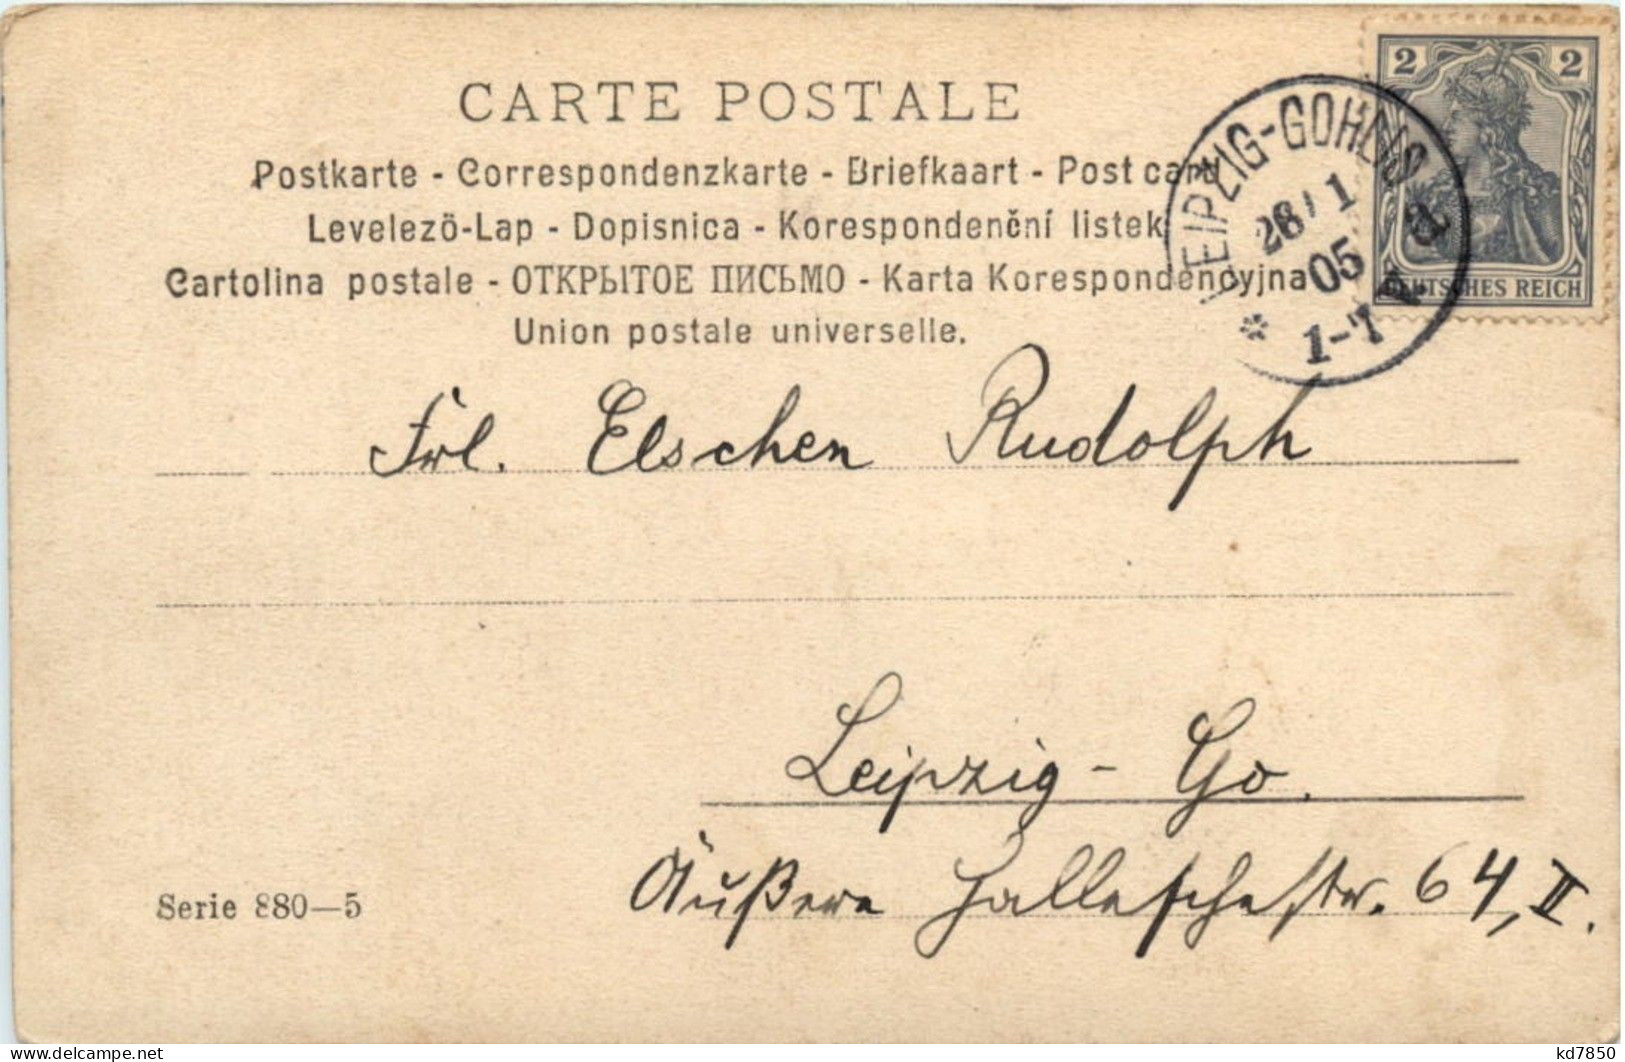 CARTE POSTALE
Postkarte - Correspondenzkarte - Briefkaart - Post card
Levelezö-Lap - Dopisnica - Korespondenční listek
Cartolina postale - ОТКРЫТОЕ ПИСЬМО - Karta Korespondencyjna
Union postale universelle.
2 2
DEUTSCHES REICH
LEIPZIG-GOHLIS
28/1
05
1-7 V
* a
Frl. Elschen Rudolph
Leipzig - Go.
Äußere Hallescherstr. 64, II.
Serie 880—5
kd7850